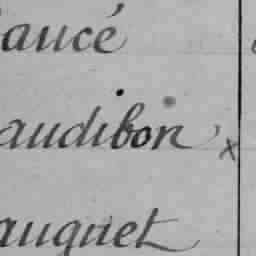 aucé
audibon x
auquet